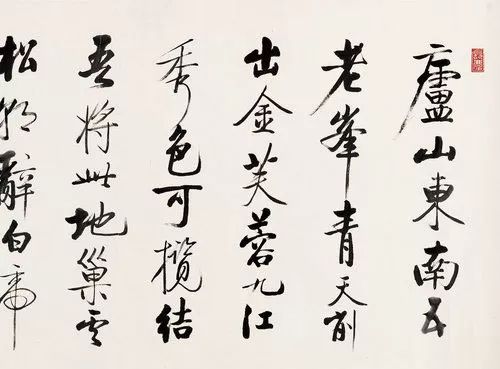 廬山東南五
老峯青天削
出金芙蓉九江
秀色可攬結
吾將此地巢雲
松朝辭白帝